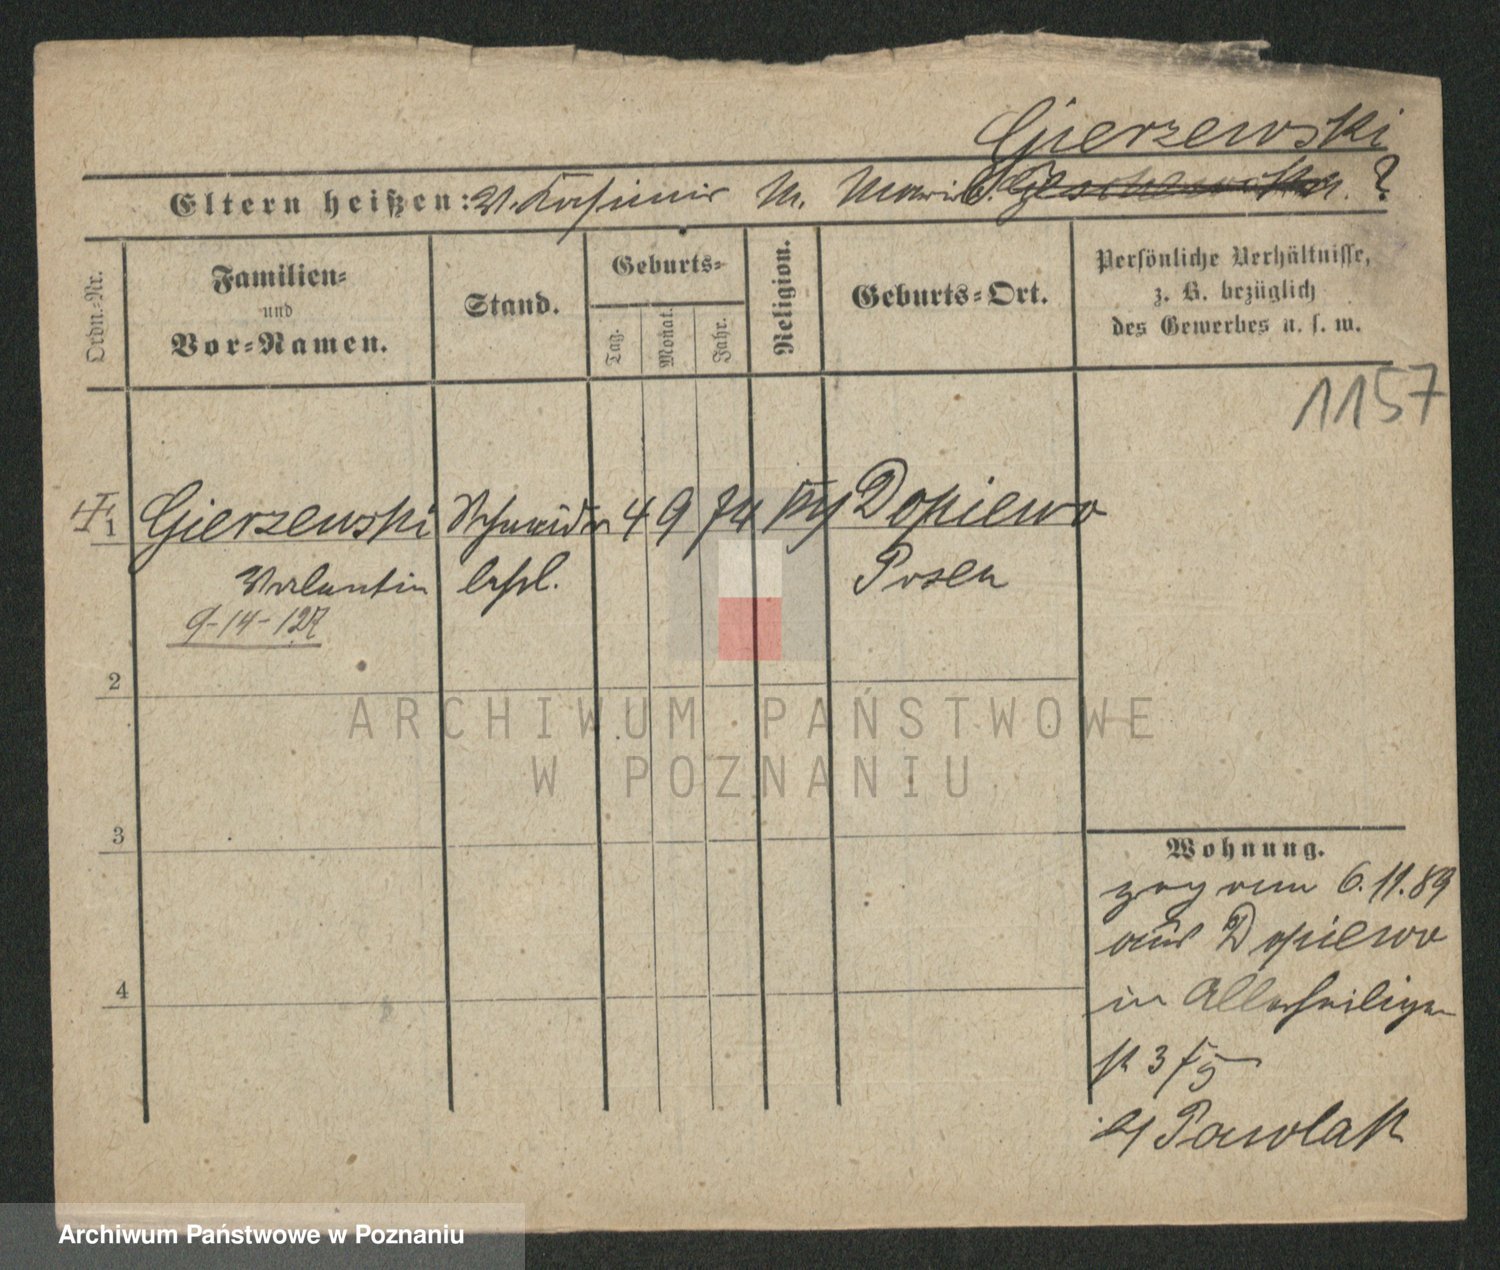 Gierzewski
Eltern heißen: V. Kasimir M. Maria ?
Ordn.-Nr.
Familien-
und
Vor-Namen.
Stand.
Geburts-
Tag.
Monat.
Jahr.
Religion.
Geburts-Ort.
Persönliche Verhältnisse,
z. B. bezüglich
des Gewerbes u. s. w.
1157
1 Gierzewski Schneider 4 9 74 Dopiewo
Valentin lehrl. Posen
9-14-127
2
3
4
Wohnung.
zog am 6.11.89
aus Dopiewo
in Allerheiligen
st 3
b/ Pawlak
ARCHIWUM PAŃSTWOWE
W POZNANIU
Archiwum Państwowe w Poznaniu